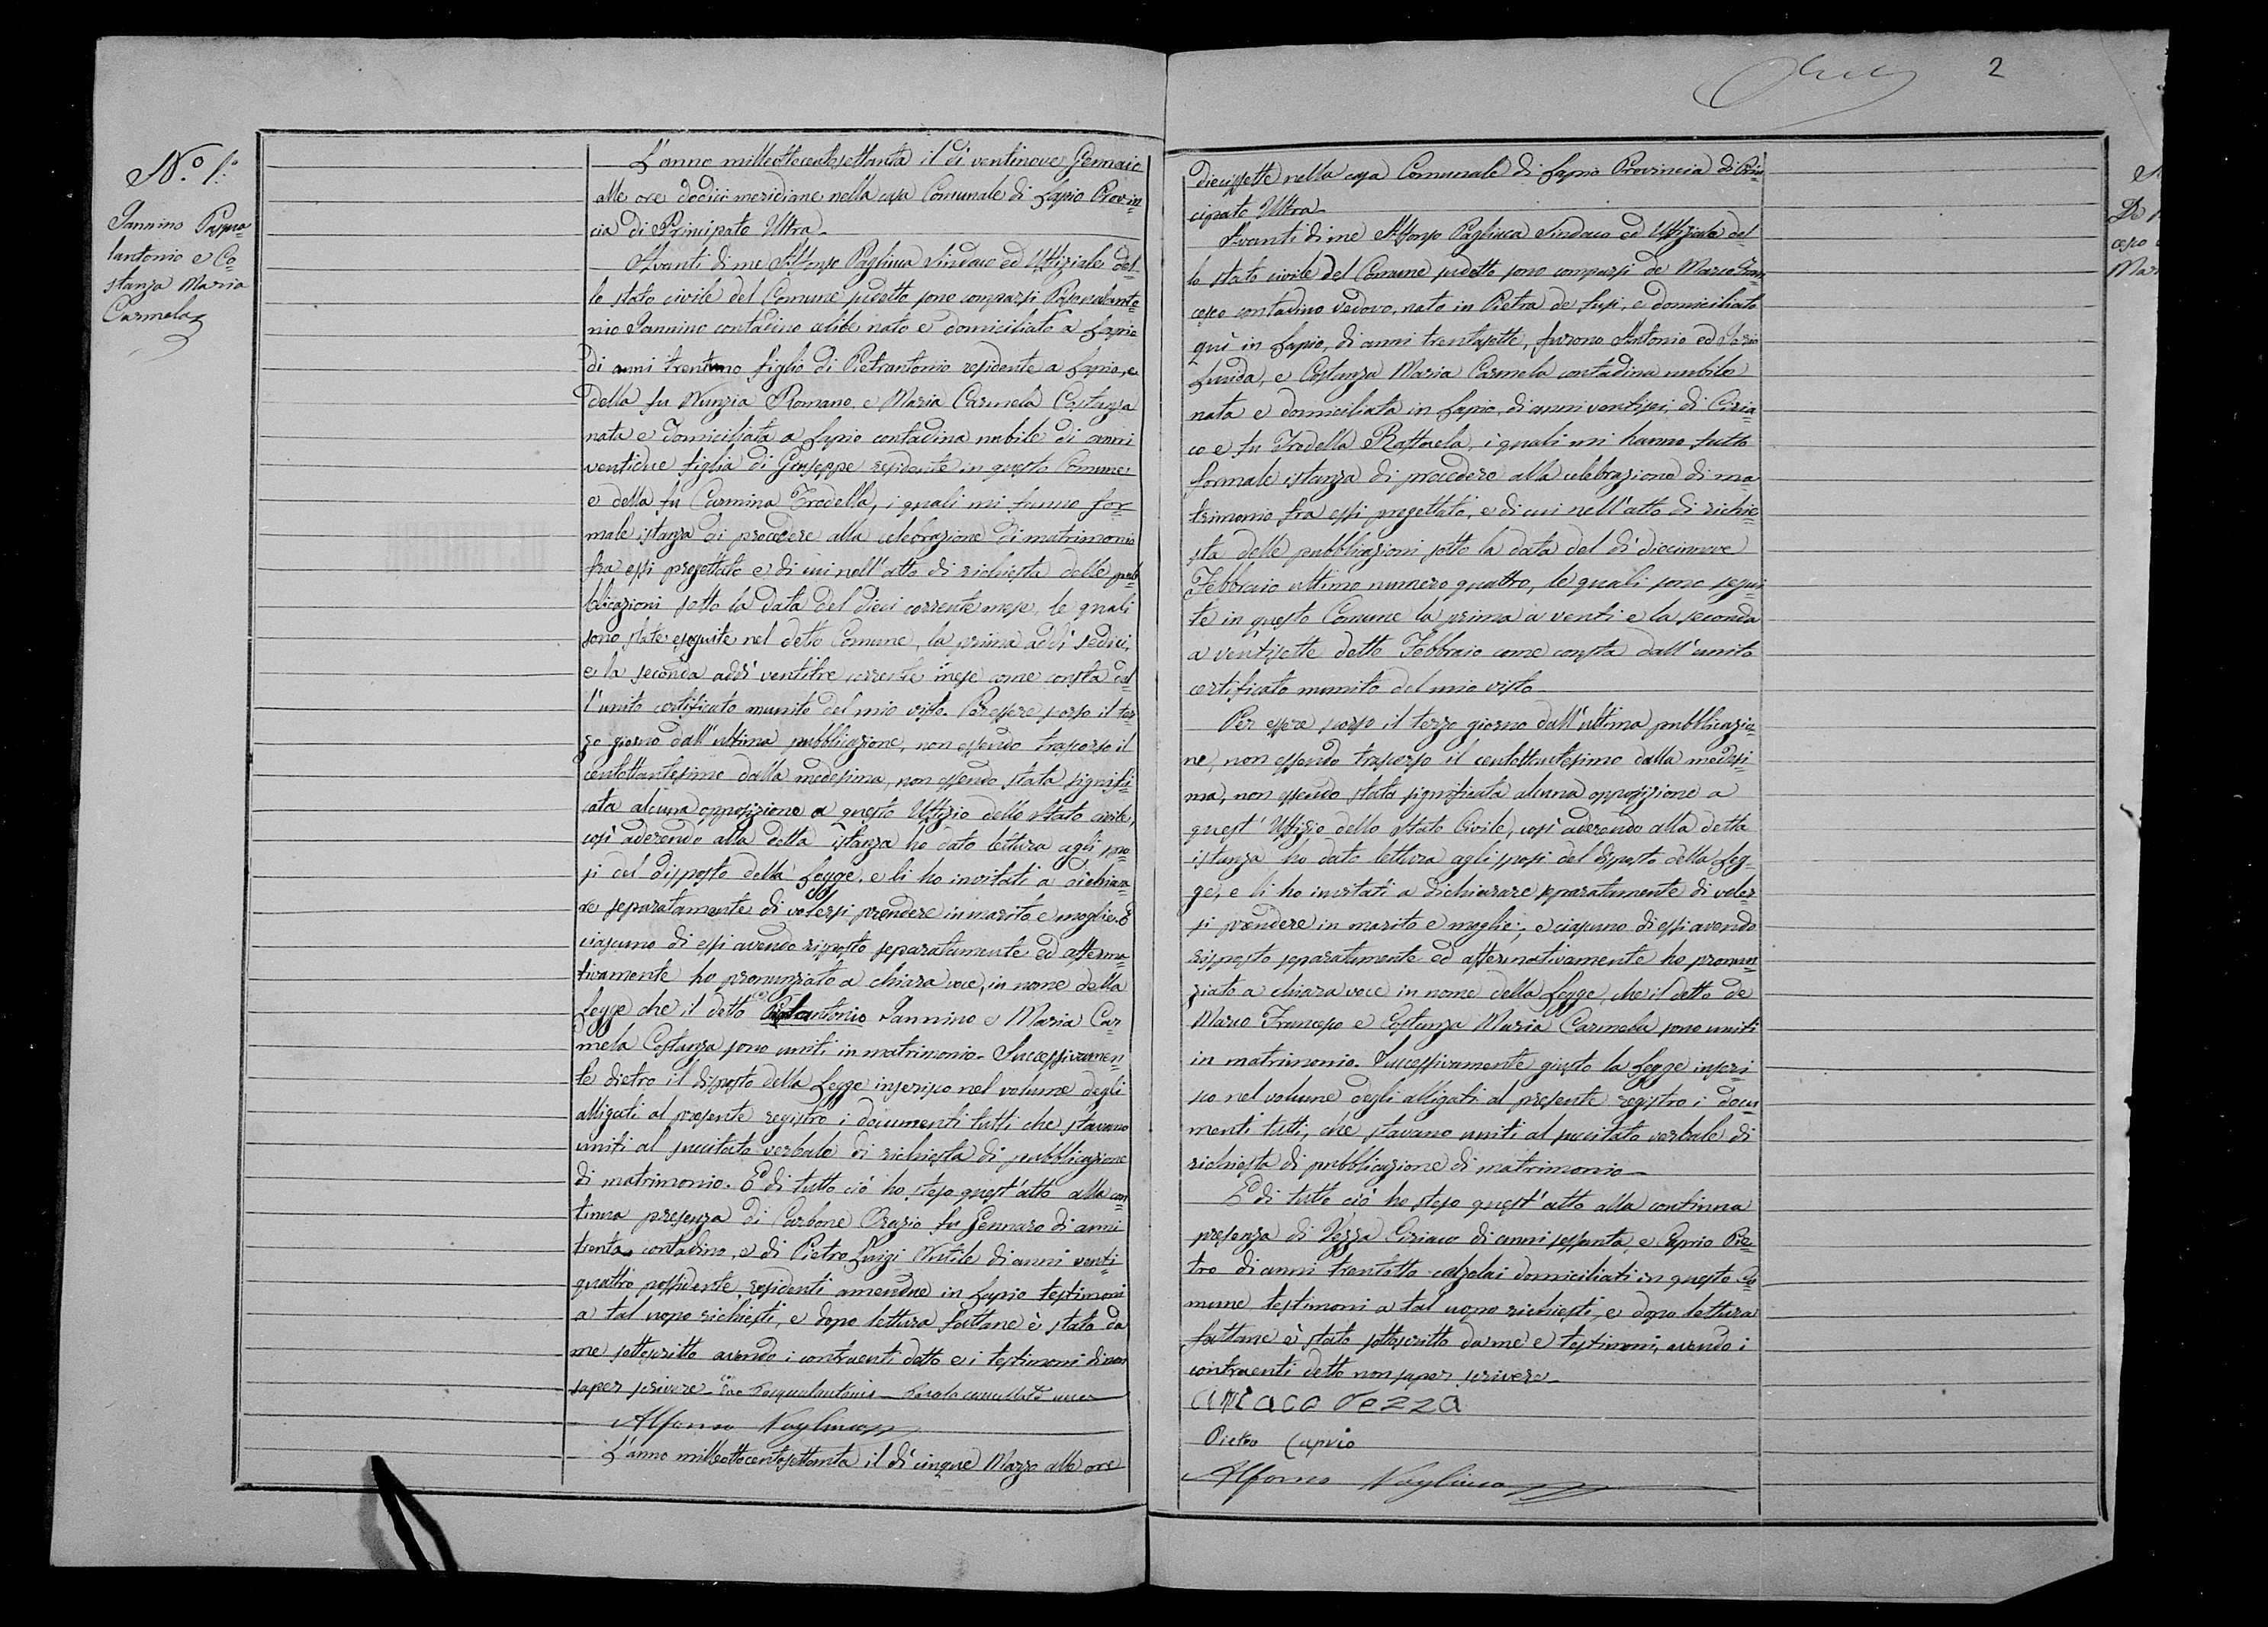 N.º 1º
Iannino Pasqua=
lantonio e Co=
stanza Maria
Carmela
L'anno milleottocentosettanta il dì ventinove Gennaio
alle ore dodici meridiane nella casa Comunale di Lapio Provin=
cia di Principato Ultra
Avanti di me Alfonso Pagliuca Sindaco ed Uffiziale del=
lo stato civile del Comune sudetto sono comparsi Pasqualanto=
nio Iannino contadino celibe nato e domiciliato a Lapio
di anni trentuno figlio di Pietrantonio residente a Lapio, e
della fu Nunzia Romano, e Maria Carmela Costanza
nata e domiciliata a Lapio contadina nubile di anni
ventidue figlia di Giuseppe residente in questo Comune
e della fu Carmina Trodella, i quali mi fanno for=
male istanza di procedere alla celebrazione di matrimonio
fra essi progettato e di cui nell'atto di richiesta delle pub=
blicazioni sotto la data del dieci corrente mese, le quali
sono state eseguite nel detto Comune, la prima addì sedici,
e la seconda addì ventitre corrente mese come consta dal=
l'unito certificato munito del mio visto. Per essere scorso il ter=
zo giorno dall'ultima pubblicazione, non essendo trascorso il
centottantesimo dalla medesima, non essendo stata signifi=
cata alcuna opposizione a questo Uffizio dello stato civile,
così aderendo alla detta istanza ho dato lettura agli spo=
si del disposto della Legge, e li ho invitati a dichiara=
re separatamente di volersi prendere in marito e moglie. E
ciascuno di essi avendo risposto separatamente ed afferma=
tivamente ho pronunziato a chiara voce, in nome della
legge che il detto Iannino e Maria Car=
mela Costanza sono uniti in matrimonio. Successivamen=
te dietro il disposto della Legge inserisco nel volume degli
alligati al presente registro i documenti tutti che stavano
uniti al succitato verbale di richiesta di pubblicazione
di matrimonio. E di tutto ciò ho steso quest'atto alla con=
tinua presenza di Carbone Orazio fu Gennaro di anni
trenta contadino, e di Pietro Luigi Nutile di anni venti=
quattro possidente, residenti amendue in Lapio testimoni
a tal uopo richiesti, e dopo lettura fattane è stato da
me sottoscritto avendo i contraenti detto e i testimoni di non
saper scrivere Pasqualantonio Parola cancellata una
Alfonso Pagliuca
L'anno milleottocentosettanta il dì cinque Marzo alle ore
2
diecissette nella casa Comunale di Lapio Provincia di Prin
cipato Ultra
Avanti di me Alfonso Pagliuca Sindaco ed Uffiziale del
lo stato civile del Comune sudetto sono comparsi de Marco Fran
cesco contadino vedovo, nato in Pietra de fusi, e domiciliato
quì in Lapio, di anni trentasette, furono Antonio ed
e Costanza Maria Carmela contadina nubile
nata e domiciliata in Lapio, di anni ventisei, di Ciria=
co e fu Trodella Raffaela, i quali mi hanno fatto
formale istanza di procedere alla celebrazione di ma
trimonio fra essi progettato, e di cui nell'atto di richie=
sta delle pubblicazioni sotto la data del dì diecinnove
Febbraio ultimo numero quattro, le quali sono segui
te in questo Comune la prima a venti e la seconda
a ventisette detto Febbraio come consta dall'unito
certificato munito del mio visto
Per essere scorso il terzo giorno dall'ultima pubblicazio=
ne, non essendo trascorso il centottantesimo dalla medesi=
ma, non essendo stata significata alcuna opposizione a
quest'Uffizio dello Stato Civile, così aderendo alla detta
istanza ho dato lettura agli sposi del disposto della Leg=
ge, e li ho invitati a dichiarare separatamente di voler
si prendere in marito e moglie; e ciascuno di essi avendo
risposto separatamente ed affermativamente ho pronun=
ziato a chiara voce in nome della Legge, che il detto de
Marco Francesco e Costanza Maria Carmela sono uniti
in matrimonio. Successivamente giusto la Legge inseri=
sco nel volume degli alligati al presente registro i docu=
menti tutti, che stavano uniti al succitato verbale di
richiesta di pubblicazione di matrimonio
E di tutto ciò ho steso quest'atto alla continua
presenza di Vezza Ciriaco di anni sessanta, e Caprio Pie=
tro di anni trentotto calzolai domiciliati in questo Co=
mune testimoni a tal uopo richiesti, e dopo lettura
fattane è stato sottoscritto da me e testimoni, avendo i
contraenti detto non saper scrivere
Ciriaco Vezza
Pietro Caprio
Alfonso Pagliuca
De
cesco
Mar